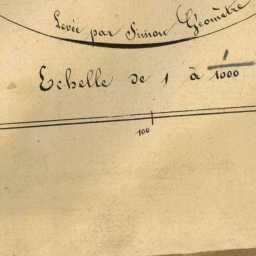 Levée par Simon Géomètre
Echelle de 1 à 1/1000
100